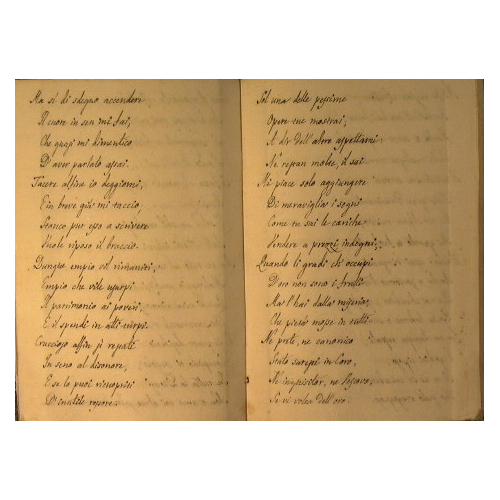 Ma sì di sdegno accendere
Il cuore in sen mi fai,
Che quasi mi dimentico
D'aver parlato assai.
Tacere alfine io deggiomi,
E in breve già mi taccio,
Stanco pur esso a scrivere
Vuole riposo il braccio.
Dunque empio col rimanti,
Empio che vile usurpi
Il patrimonio ai poveri,
E il spendi in atti turpi.
Cruccioso alfin si
In seno al disonore,
E se lo puoi ricoprisi
D'inutile rossore.
Sol una delle pessime
Opere tue mostrai,
A dir dell'altre aspettami
Ne restan molte, il sai
Mi piace solo aggiungere
Di meraviglia i segni
Come tu sai le cariche
Vendere a prezzi indegni,
Quando li gradi ch'occupi
D'oro non sono i frutti
Ma l'hai dalla miseria,
Che pietà mosse in tutti
Ne prete, ne canonico
Stato saresti in Coro,
Ne inquisitor, ne Vescovo,
Se vi volea dell'oro.